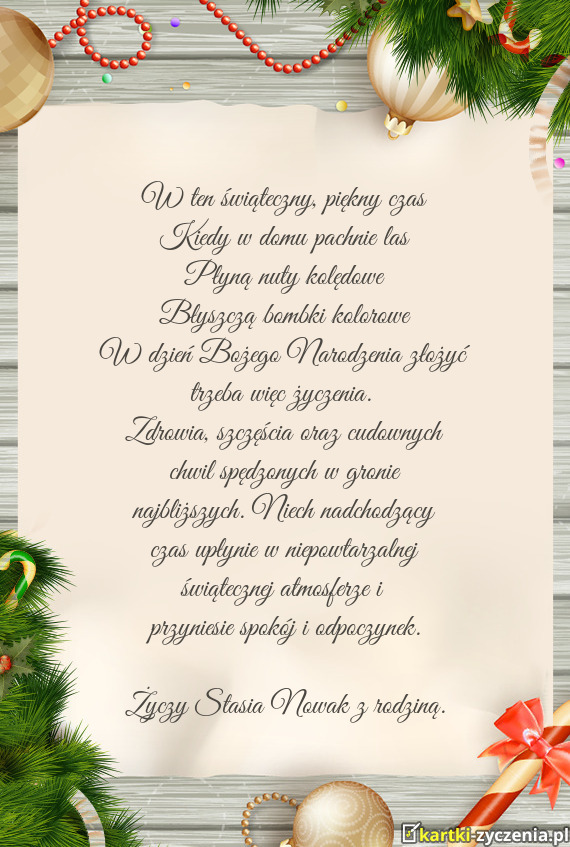 W ten świąteczny, piękny czas
Kiedy w domu pachnie las
Płyną nuty kolędowe
Błyszczą bombki kolorowe
W dzień Bożego Narodzenia złożyć
trzeba więc życzenia.
Zdrowia, szczęścia oraz cudownych
chwil spędzonych w gronie
najbliższych. Niech nadchodzący
czas upłynie w niepowtarzalnej
świątecznej atmosferze i
przyniesie spokój i odpoczynek.
Życzy Stasia Nowak z rodziną.
kartki-zyczenia.pl